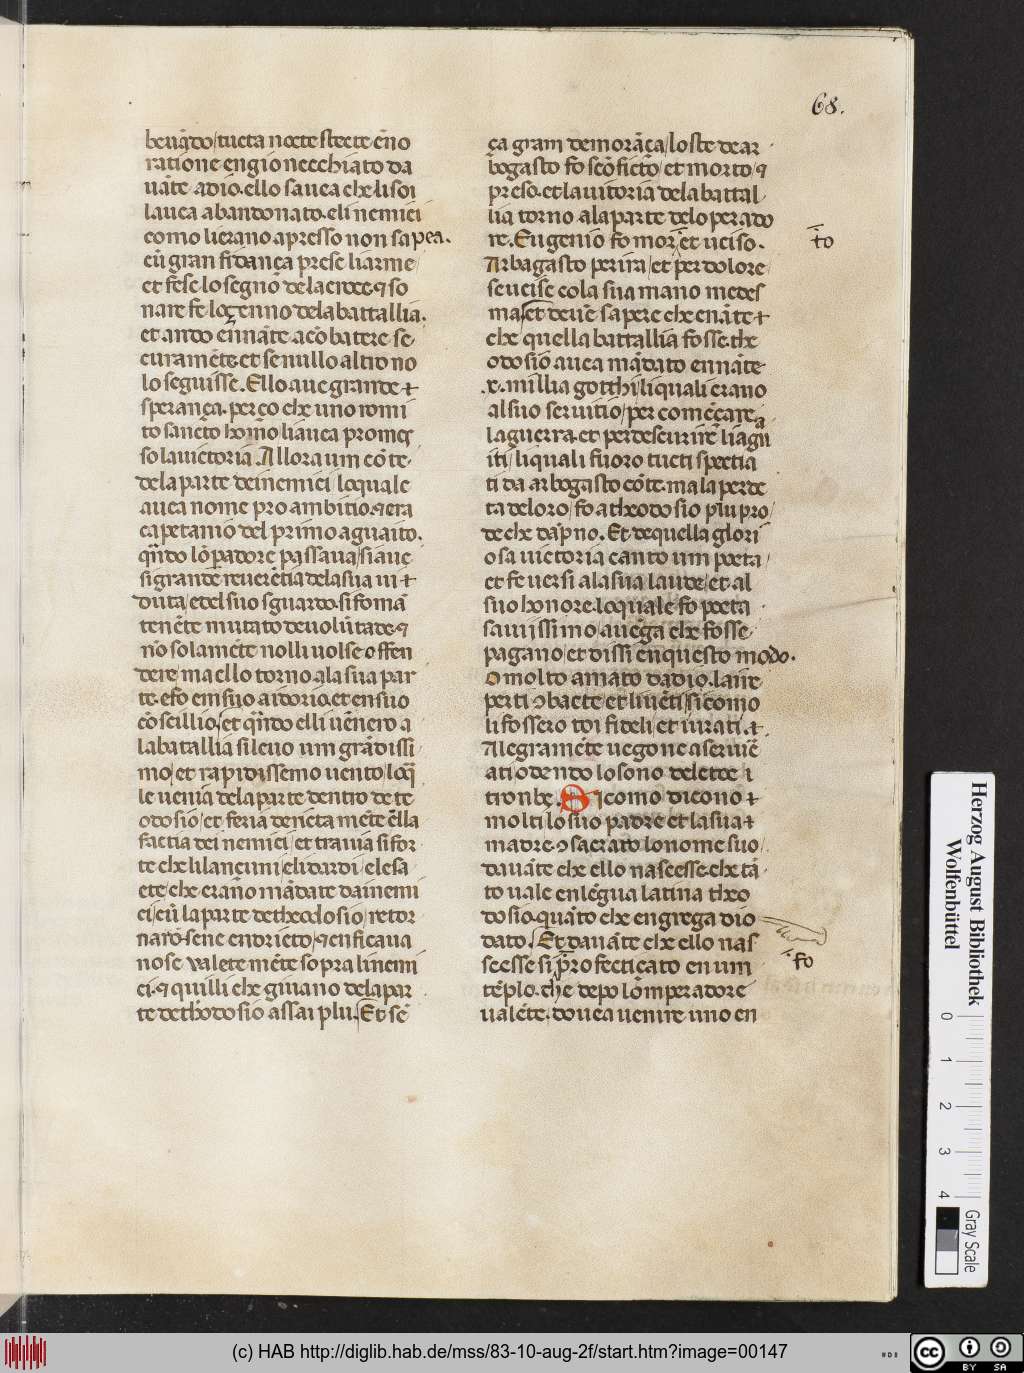 68.
beuq̃do/tucta nocte stecte ẽ no
ratione en gionecchiato da
uãte adio. ello sauea che li soi
lauea abandonato. eli nemici
como lierano apresso non sapea.
cũ gran fidança prese liarme/
et fese lo segno dela croce. ꝯ so
nare fe lo cenno dela battallia.
et ando ennãte. a cõbatere se
curamẽte. et se nullo altro no
lo seguisse. Ello aue grande
sperança. perço che uno romi
to sancto homo liauea promes
so la uictoria. Allora um cõte.
dela parte dei nemici/ loquale
auea nome pro ambitio. ꝯ era
capetanio del primo aguaito.
qñdo lõpadore passaua/si aue
si grande reuerẽtia dela sua ui
duta/ et del suo sguardo. si fo mã
tenẽte mutato de uolũtade. ꝯ
nõ solamẽte nolli uolse offen
dere/ ma ello torno ala sua par
te. e fo em suo aidorio. et en suo
cõscillio/ et qñdo elli uẽnero a
la battallia si leuo um grãdissi
mo/ et rapidissemo uento/ loq̃
le uenia dela parte dentro de te
odosio/ et feria dericta mẽte ẽlla
faccia dei nemici/ et trauia si for
te che li lancuni/ eli dardi/ ele sa
ecte/ che erano mãdate da inemi
ci/ cũ la parte de theodosio/ retor
naro. sene endrieto/ ꝯ en ficaua
nose valete mẽte sopra li nemi
ci. ꝯ quilli che giuano dela par
te de thodosio assai plu. Et sẽ
ça gram demorãça/ loste de ar
bogasto fo scõficto/ et morto/ ꝯ
preso. et la uitoria dela battal
lia torno ala parte delo perado
re. Eugenio fo mor. et uciso.
t̃o
Arbagasto per ira/ et per dolore
se ucise cola sua mano medes
ma/ et deuẽ sapere che enãte
che quella battallia fosse. the
odosio auea mãdato ennãte
.x. millia gotthi/ li quali erano
al suo seruitio/ per comẽçare
la guerra. et per descurire li agu
iti/ li quali fuoro tucti spectia
ti da arbogasto cõte. ma la perde
ta de loro/ fo a theodosio plu pro
de che dãpno. Et de quella glori
osa uictoria canto um poeta/
et fe uersi ala sua laude/ et al
suo honore. loquale fo poeta
sauissimo/ auẽga che fosse
pagano/ et dissi en questo modo.
O molto amato da dio. la ire
perti ꝯbacte/ et li uẽti/ si como
li fossero toi fideli/ et iurati. et
Alegramẽte uegone a seruiẽ
ati odendo lo sono dele toe i
tronbe. Si como dicono
molti lo suo padre et la sua
madre/ ꝯsacrato lo nome suo/
dauãte che ello nascesse. che tã
to uale en lẽgua latina theo
dosio. quãto che en grega dio
dato. Et dauãte che ello nas
fo
scesse si profecticato en um
tẽplo. che depo lomperadore
ualẽte. douea uenire uno en
Herzog August Bibliothek
Wolfenbüttel
0 1 2 3 4
Gray Scale
(c) HAB http://diglib.hab.de/mss/83-10-aug-2f/start.htm?image=00147
cc BY SA